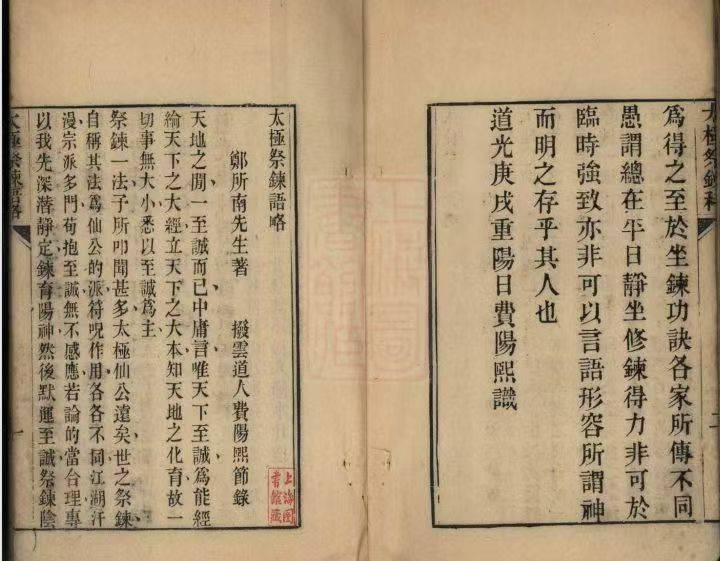 太極祭鍊科
為得之至於坐鍊功訣各家所傳不同
愚謂總在平日靜坐修鍊得力非可於
臨時強致亦非可以言語形容所謂神
而明之存乎其人也
道光庚戌重陽日費陽熙識
二
太極祭鍊語略
鄭所南先生著 撥雲道人費陽熙節錄
天地之間一至誠而已中庸言唯天下至誠為能經
綸天下之大經立天下之大本知天地之化育故一
切事無大小悉以至誠為主
祭鍊一法予所叩聞甚多太極仙公遠矣世之祭鍊
自稱其法為仙公的派符呪作用各各不同江湖汗
漫宗派多門苟抱至誠無不感應若論的當台理專
以我先深潛靜定鍊育陽神然後默運至誠祭鍊陰
太極祭鍊語略
一
上海圖書館藏